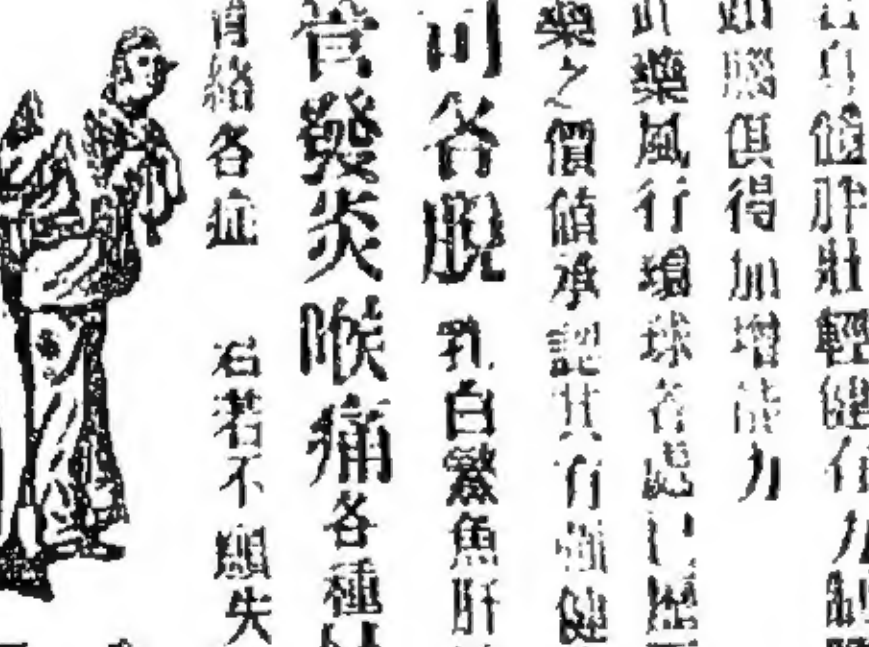 身值胖壯輕健有力制
腦俱得加增能力
此藥風行環球各處已歷
藥之價值承認其有強健
司各脫 乳白鰵魚肝
管發炎喉痛各種
各症 君若不願失